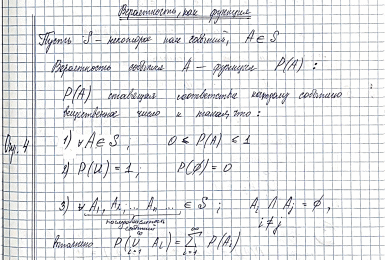 Вероятность, как функция
Пусть S – некоторое поле событий, A ∈ S
Вероятность события A – функция P(A) :
P(A) ставящая соответствие каждому событию
вещественное число и такая, что :
Опр. 4
1) ∀ A ∈ S , 0 ≤ P(A) ≤ 1
2) P(U) = 1 , P(∅) = 0
3) ∀ A₁, A₂, ... Aₙ ... ∈ S ; Aᵢ ∩ Aⱼ = ∅ ,
i ≠ j
событий
P(∪ Aᵢ) = ∑ P(Aᵢ)
i=1 i=1